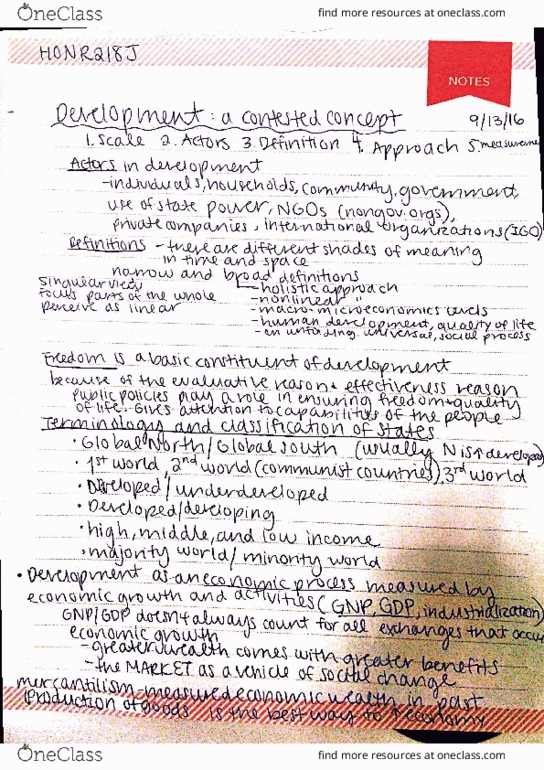 OneClass
find more resources at oneclass.com
HONR218J
NOTES
Development: a contested concept 9/13/16
1. Scale 2. Actors 3. Definition 4. Approach 5. measureme
Actors in development
-individuals, households, community, government
use of state power, NGOs (nongov. orgs),
private companies, international organizations (IGO)
Definitions - there are different shades of meaning
in time and space
narrow and broad definitions
singular view
focus parts of the whole
perceive as linear
holistic approach
-nonlinear "
-macro-microeconomics levels
-human development, quality of life
-an unfolding, universal, social process
Freedom is a basic constituent of development
because of the evaluative reason + effectiveness reason
public policies play a role in ensuring freedom + quality
of life. Gives attention to capabilities of the people
Terminology and classification of states
• Global North/Global South (usually N is ↑ develope)
• 1st world, 2nd world (communist countries), 3rd world
• Developed/underdeveloped
• Developed/developing
• high, middle, and low income
• majority world/minority world
• Development as an economic process measured by
economic growth and activities (GNP, GDP, industrialization)
GNP/GDP doesn't always count for all exchanges that occur
economic growth
-greater wealth comes with greater benefits
-the MARKET as a vehicle of social change
mercantilism-measured economic wealth in past
(production of goods is the best way to ↑ economy
OneClass
find more resources at oneclass.com